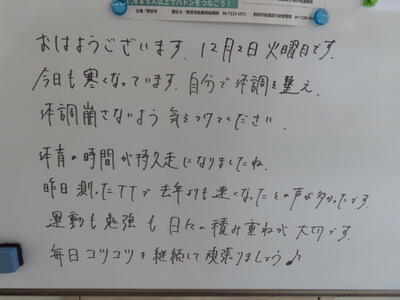 665人以上でバトンをつなごう!
おはようございます。12月2日火曜日です。
今日も寒くなっています。自分で体調を整え、
体調崩さないよう気をつけてください。
体育の時間が持久走になりましたね。
昨日測ったTTで去年よりも速くなったとの声が多かったです。
運動も勉強も日々の積み重ねが大切です。
毎日コツコツを継続して頑張りましょう♪